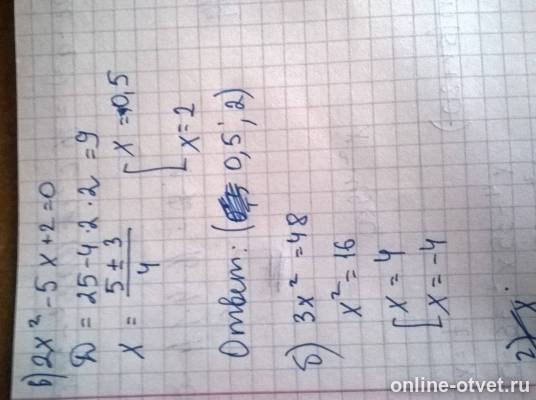 в) 2x² - 5x + 2 = 0
D = 25 - 4·2·2 = 9
x = (5 ± 3)/4 [ x = 0,5
x = 2
Ответ: ( 0,5 ; 2)
б) 3x² = 48
x² = 16
[ x = 4
x = -4
г) x
online-otvet.ru